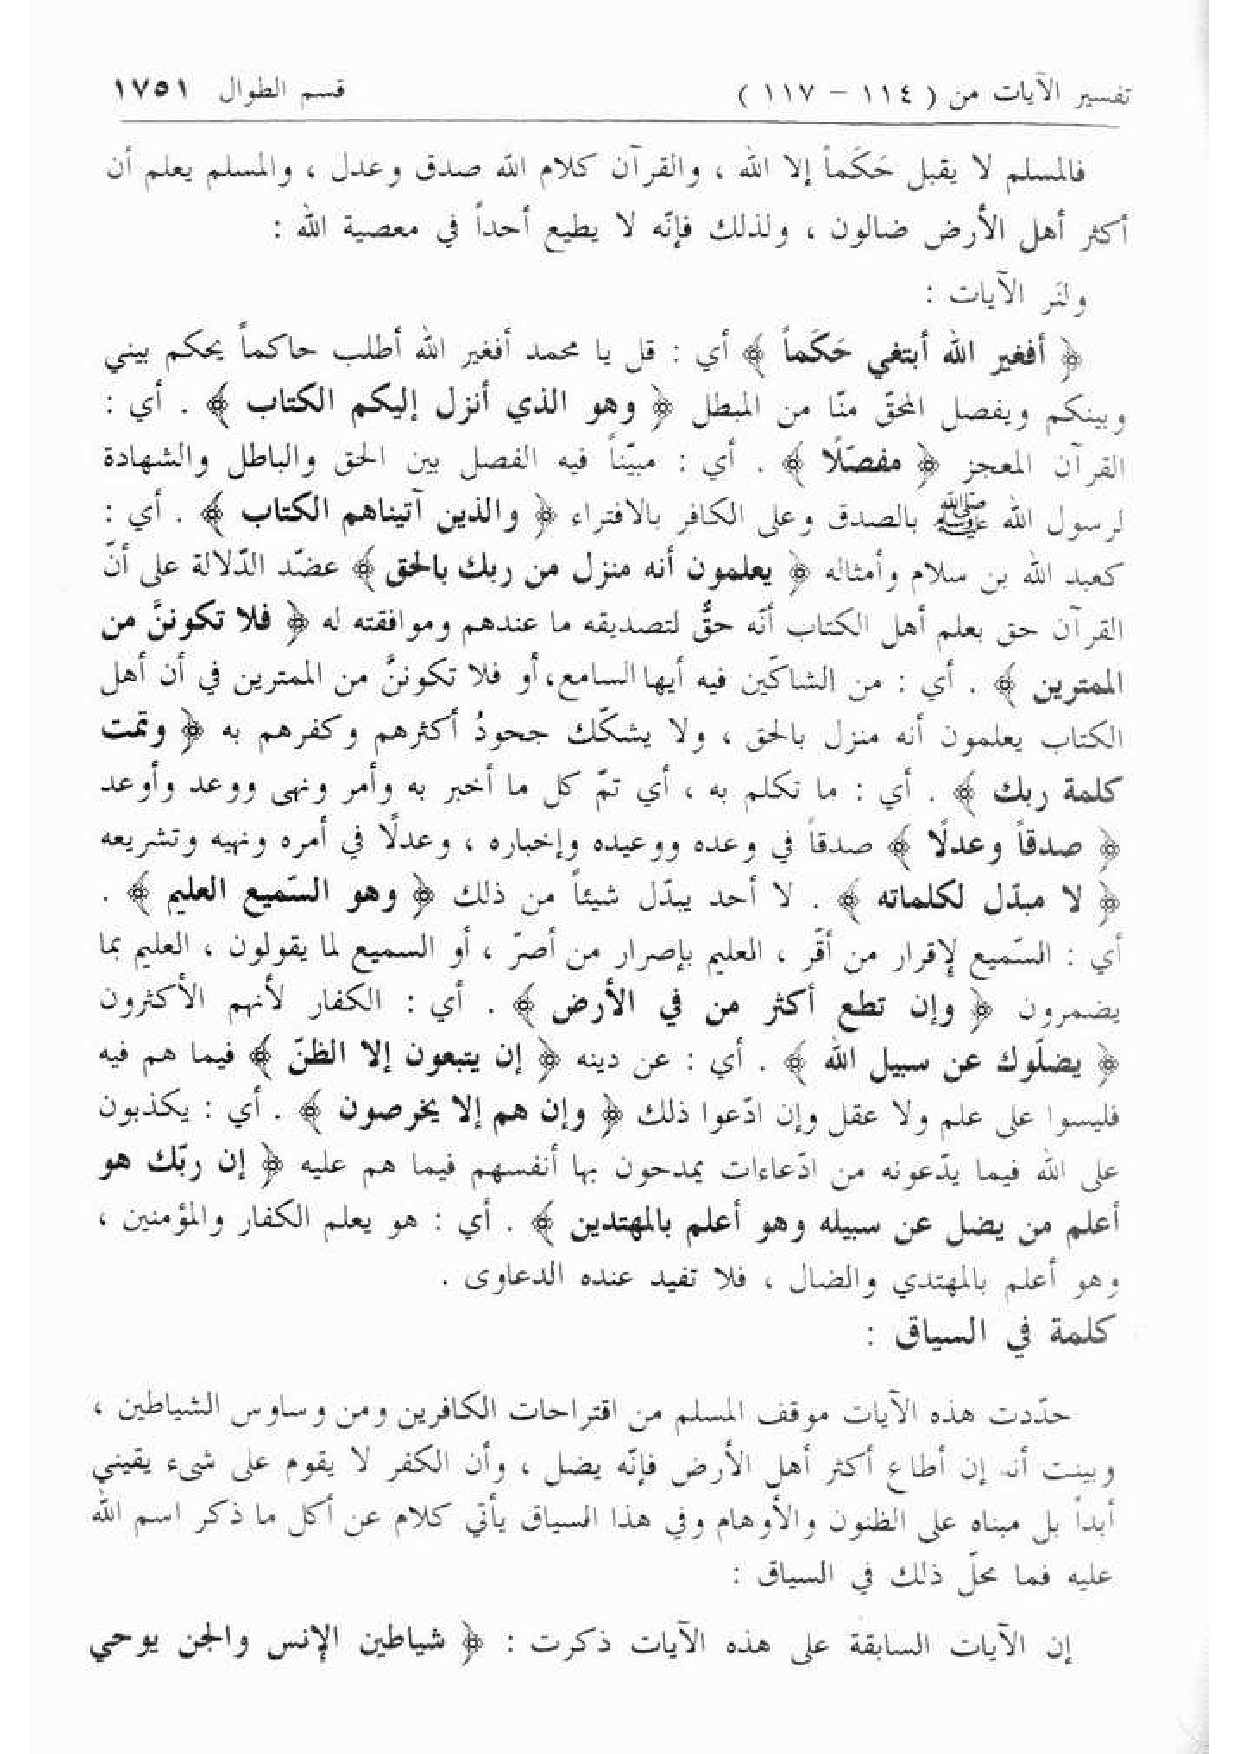 تفسير الآيات من ( ١١٤ – ١١٧ ) قسم الطوال ١٧٥١
فالمسلم لا يقبل حَكَماً إلا الله ، والقرآن كلام الله صدق وعدل ، والمسلم يعلم أن
أكثر أهل الأرض ضالون ، ولذلك فإنّه لا يطيع أحداً في معصية الله :
ولنَر الآيات :
﴿ أفغير الله أبتغي حَكَماً ﴾ أي : قل يا محمد أفغير الله أطلب حاكماً يحكم بيني
وبينكم ويفصل المحقّ منّا من المبطل ﴿ وهو الذي أنزل إليكم الكتاب ﴾ . أي :
القرآن المعجز ﴿ مفصّلًا ﴾ . أي : مبيّناً فيه الفصل بين الحق والباطل والشهادة
لرسول الله ﷺ بالصدق وعلى الكافر بالافتراء ﴿ والذين آتيناهم الكتاب ﴾ . أي :
كعبد الله بن سلام وأمثاله ﴿ يعلمون أنه منزل من ربك بالحق ﴾ عضّد الدّلالة على أنّ
القرآن حق بعلم أهل الكتاب أنّه حقٌّ لتصديقه ما عندهم وموافقته له ﴿ فلا تكوننَّ من
الممترين ﴾ . أي : من الشاكّين فيه أيها السامع، أو فلا تكوننَّ من الممترين في أن أهل
الكتاب يعلمون أنه منزل بالحق ، ولا يشكّك جحودُ أكثرهم وكفرهم به ﴿ وتمت
كلمة ربك ﴾ . أي : ما تكلم به ، أي تمّ كل ما أخبر به وأمر ونهى ووعد وأوعد
﴿ صدقاً وعدلًا ﴾ صدقاً في وعده ووعيده وإخباره ، وعدلًا في أمره ونهيه وتشريعه
﴿ لا مبدّل لكلماته ﴾ . لا أحد يبدّل شيئاً من ذلك ﴿ وهو السّميع العليم ﴾ .
أي : السّميع لإقرار من أقّر ، العليم بإصرار من أصرّ ، أو السميع لما يقولون ، العليم بما
يضمرون ﴿ وإن تطع أكثر من في الأرض ﴾ . أي : الكفار لأنهم الأكثرون
﴿ يضلّوك عن سبيل الله ﴾ . أي : عن دينه ﴿ إن يتبعون إلا الظنّ ﴾ فيما هم فيه
فليسوا على علم ولا عقل وإن ادّعوا ذلك ﴿ وإن هم إلا يخرصون ﴾ . أي : يكذبون
على الله فيما يدّعونه من ادّعاءات يمدحون بها أنفسهم فيما هم عليه ﴿ إن ربّك هو
أعلم من يضل عن سبيله وهو أعلم بالمهتدين ﴾ . أي : هو يعلم الكفار والمؤمنين ،
وهو أعلم بالمهتدي والضال ، فلا تفيد عنده الدعاوى .
كلمة في السياق :
حدّدت هذه الآيات موقف المسلم من اقتراحات الكافرين ومن وساوس الشياطين ،
وبينت أنه إن أطاع أكثر أهل الأرض فإنّه يضل ، وأن الكفر لا يقوم على شىء يقيني
أبداً بل مبناه على الظنون والأوهام وفي هذا السياق يأتي كلام عن أكل ما ذكر اسم الله
عليه فما محلّ ذلك في السياق :
إن الآيات السابقة على هذه الآيات ذكرت : ﴿ شياطين الإنس والجن يوحي